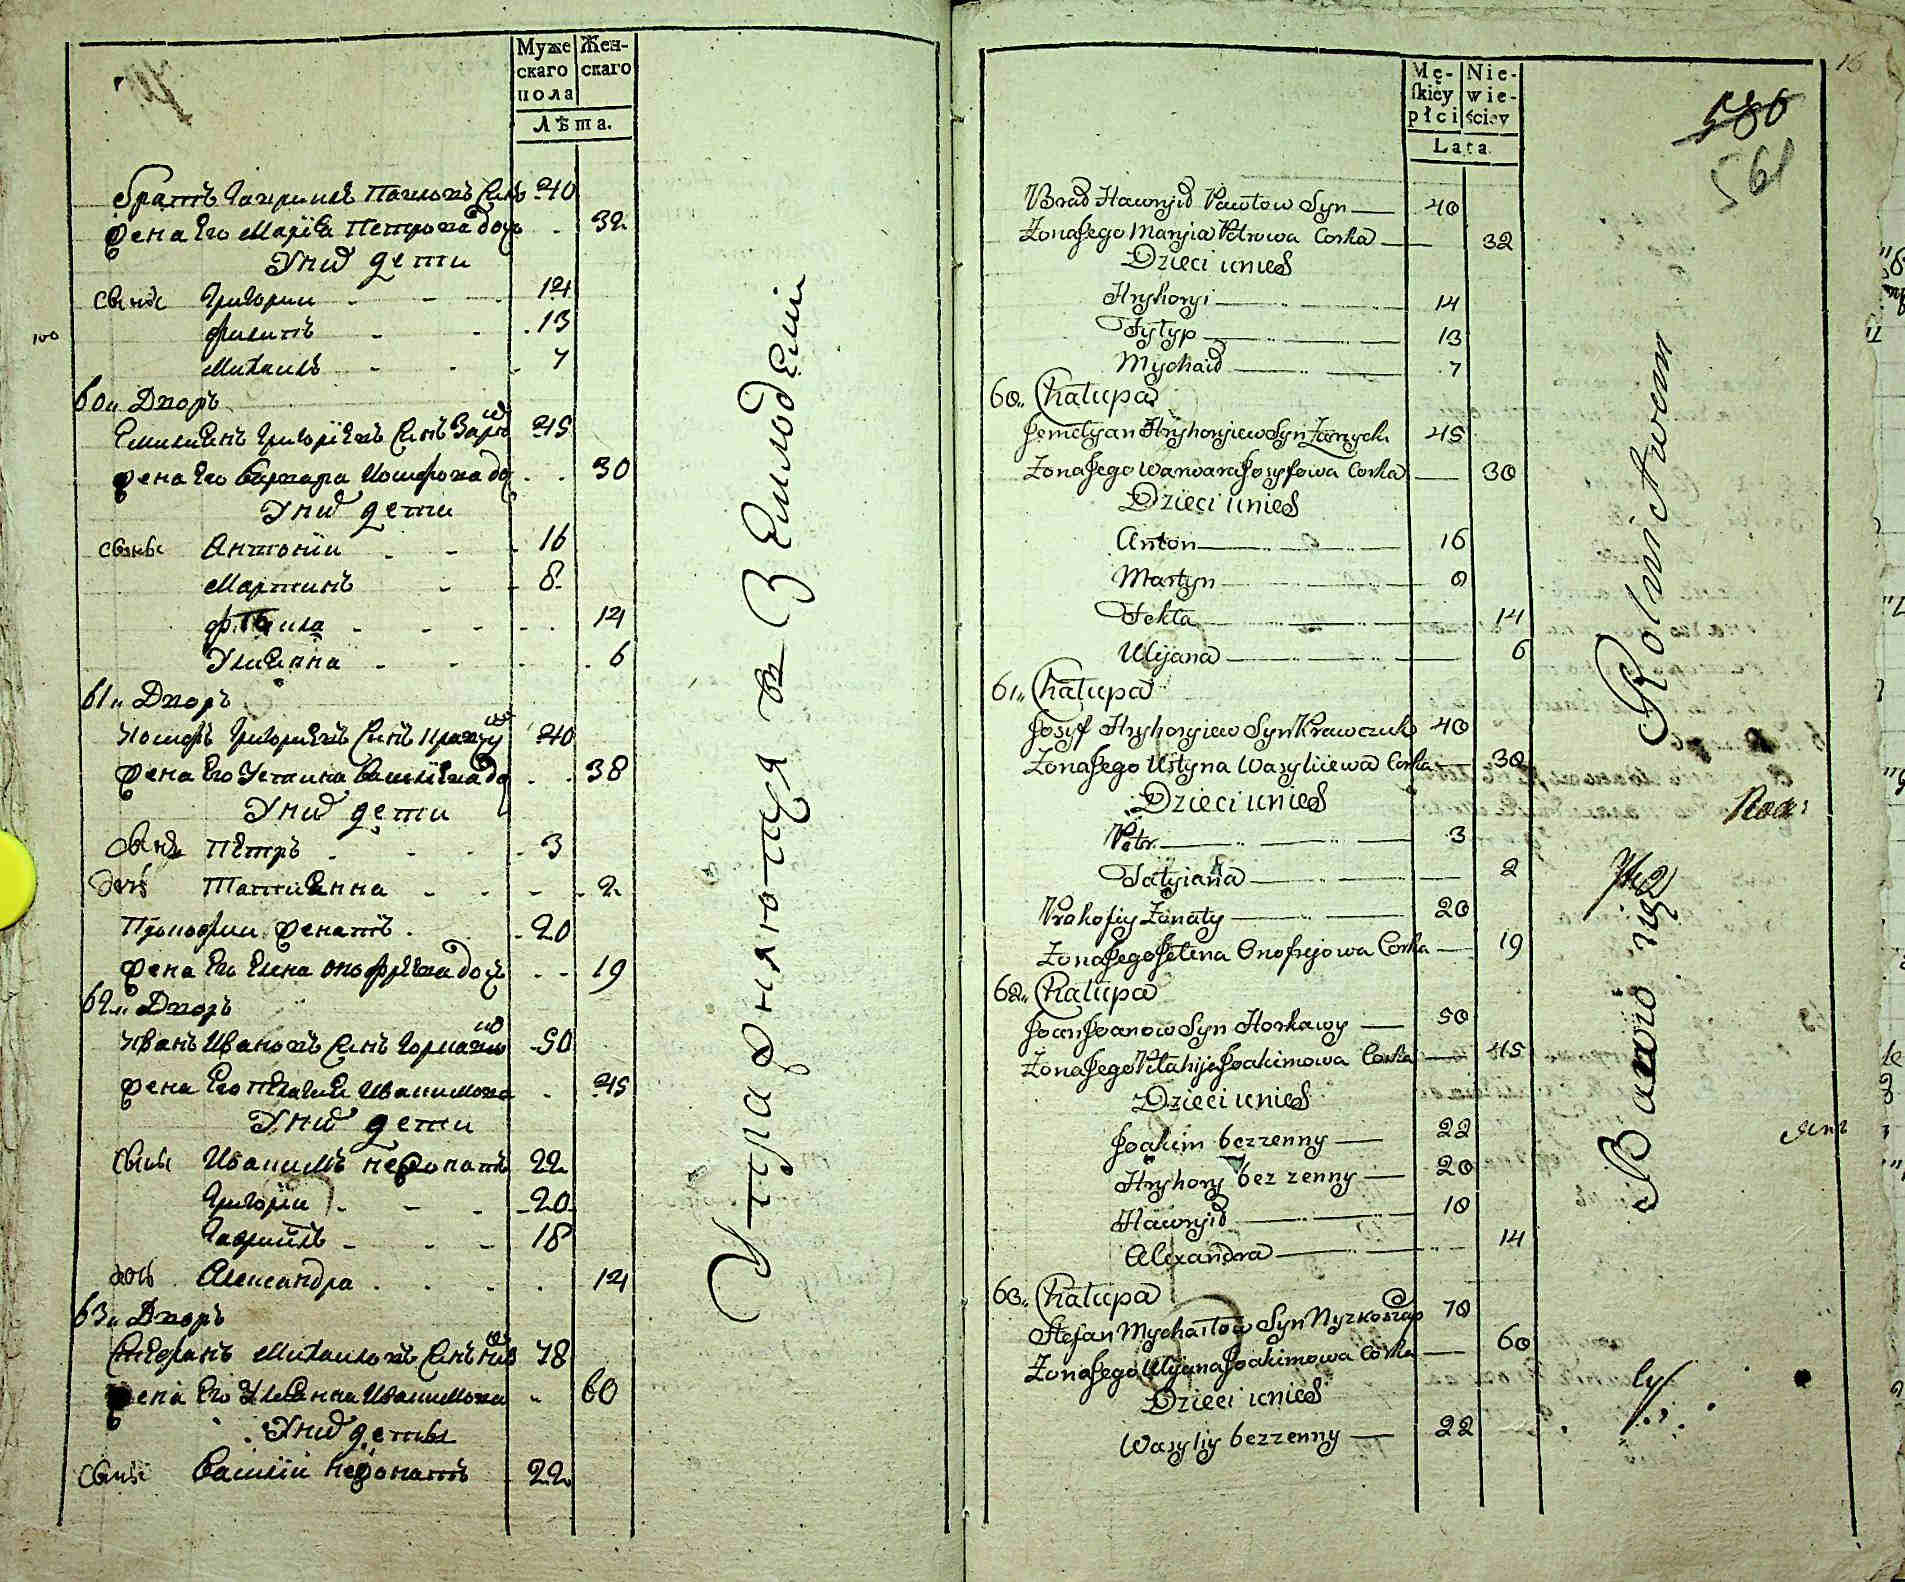 Муже
скаго
пола
Жен-
скаго
Лѣта.
братъ Гаврилъ Павловъ Синъ 40
жена Его Марія Петрова доч 32
Униⷯ дети
Сыны Григории 14
Филипъ 13
100
Михаилъ 7
60„ Дворъ
Емилиянъ Григоріевъ Синъ 45
жена Его Варвара Иосифова до 30
Униⷯ дети
сыны Антоніи 16
Мартинъ 8
14
Улияна 6
61„ Дворъ
Иосифъ Григориевъ Синъ Кравчу 40
жена Его Устина Василіева до 38
Униⷯ дети
Сынъ Петръ 3
дочь Татиянна 2
Прокофии женатъ 20
жена Его Елена Онофріева доч 19
62„ Дворъ
Иванъ Ивановъ Синъ 50
жена Его Пелагия Иванимова 45
Униⷯ дети
Сыны Иванимъ нежонатъ 22
Григоріи 20
Гавриилъ 18
дочь Александра 14
63„ Дворъ
Стефанъ Михаиловъ Синъ 78
жена Его Улиянна Иванимова 60
Униⷯ детьи
Сыны Василіи нежонатъ 22
Упражняются в Земледелии
Mę-
ſkiéy
płci
Nie-
wie-
ściéy
Lata.
16
586
561
Brad Hawryid Pawłow Syn 40
Zona Jego Maryia Petrowa Corka 32
Dzieci unieh
Hryhoryi 14
Fylyp 13
Mychaid 7
60„ Chałupa
Jemelyan Hryhoryiew Syn 45
Zona Jego Warwara Josyfowa Corka 30
Dzieci unieh
Anton 16
Martyn 8
Tekla 14
Ulyana 6
61„ Chałupa
Josyf Hryhoryiew Syn Krawczuk 40
Zona Jego Ustyna Wasyliiewa Corka 38
Dzieci unieh
Petr 3
Tatyianna 2
Prokofiy Zonaty 20
Zona Jego Jelena Onofryiowa Corka 19
62„ Chałupa
Joan Joanow Syn Horkawy 50
Zona Jego Pelahija Joakimowa Corka 45
Dzieci unieh
Joakim bezzenny 22
Hryhory bez zenny 20
Hawryid 18
Alexandra 14
63„ Chałupa
Stefan Mychaiłow Syn 78
Zona Jego Ulyana Joakimowa Corka 60
Dzieci unieh
Wasyliy bezzenny 22
Bawio się Rolnictwem